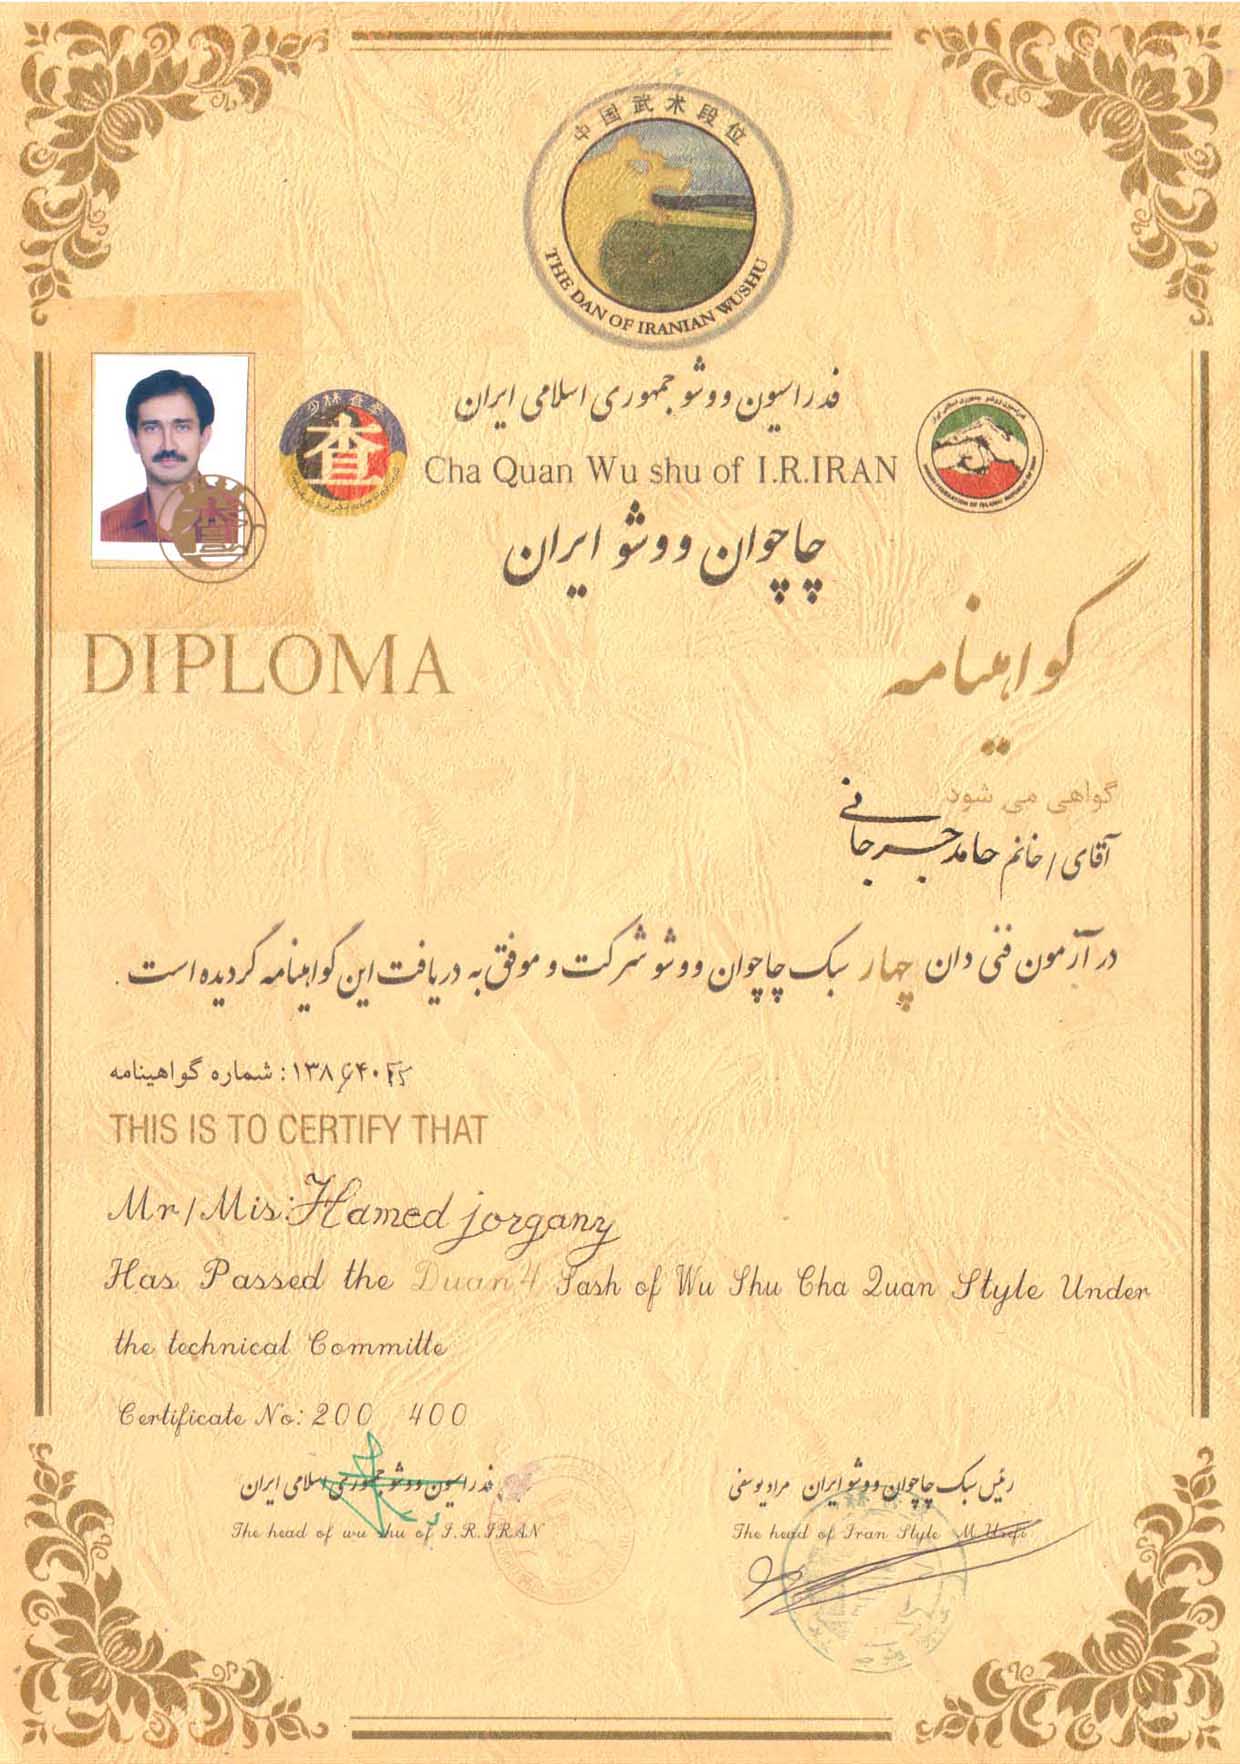 中国武术段位
THE DAN OF IRANIAN WUSHU
فدراسیون ووشو جمهوری اسلامی ایران
少林查拳
查
Cha Quan Wu shu of I.R.IRAN
چاچوان ووشو ایران
DIPLOMA
گواهینامه
گواهی می شود
آقای / خانم حامد جرجانی
در آزمون فنی دان چهار سبک چاچوان ووشو شرکت و موفق به دریافت این گواهینامه گردیده است .
شماره گواهینامه :
THIS IS TO CERTIFY THAT
Mr/Mis: Hamed jorgany
Has Passed the Duan 4 Sash of Wu Shu Cha Quan Style Under
the technical Committe
Certificate No: 200 400
فدراسیون ووشو جمهوری اسلامی ایران
The head of wu shu of I.R.IRAN
رئیس سبک چاچوان ووشو ایران مراد یوسفی
The head of Iran Style M.Usefi